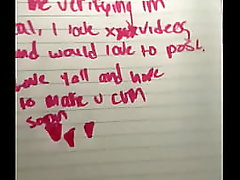 me verifying im
al, I love xxxvideos
and would love to post.
Love Yall and hope
to make u cum
soon